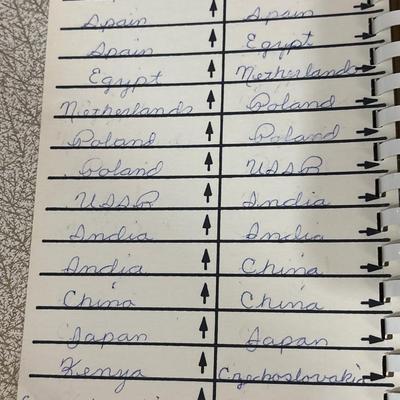 Spain Spain
Spain Egypt
Egypt Netherlands
Netherlands Poland
Poland Poland
Poland USSR
USSR India
India India
India China
China China
Japan Japan
Kenya Czechoslovakia